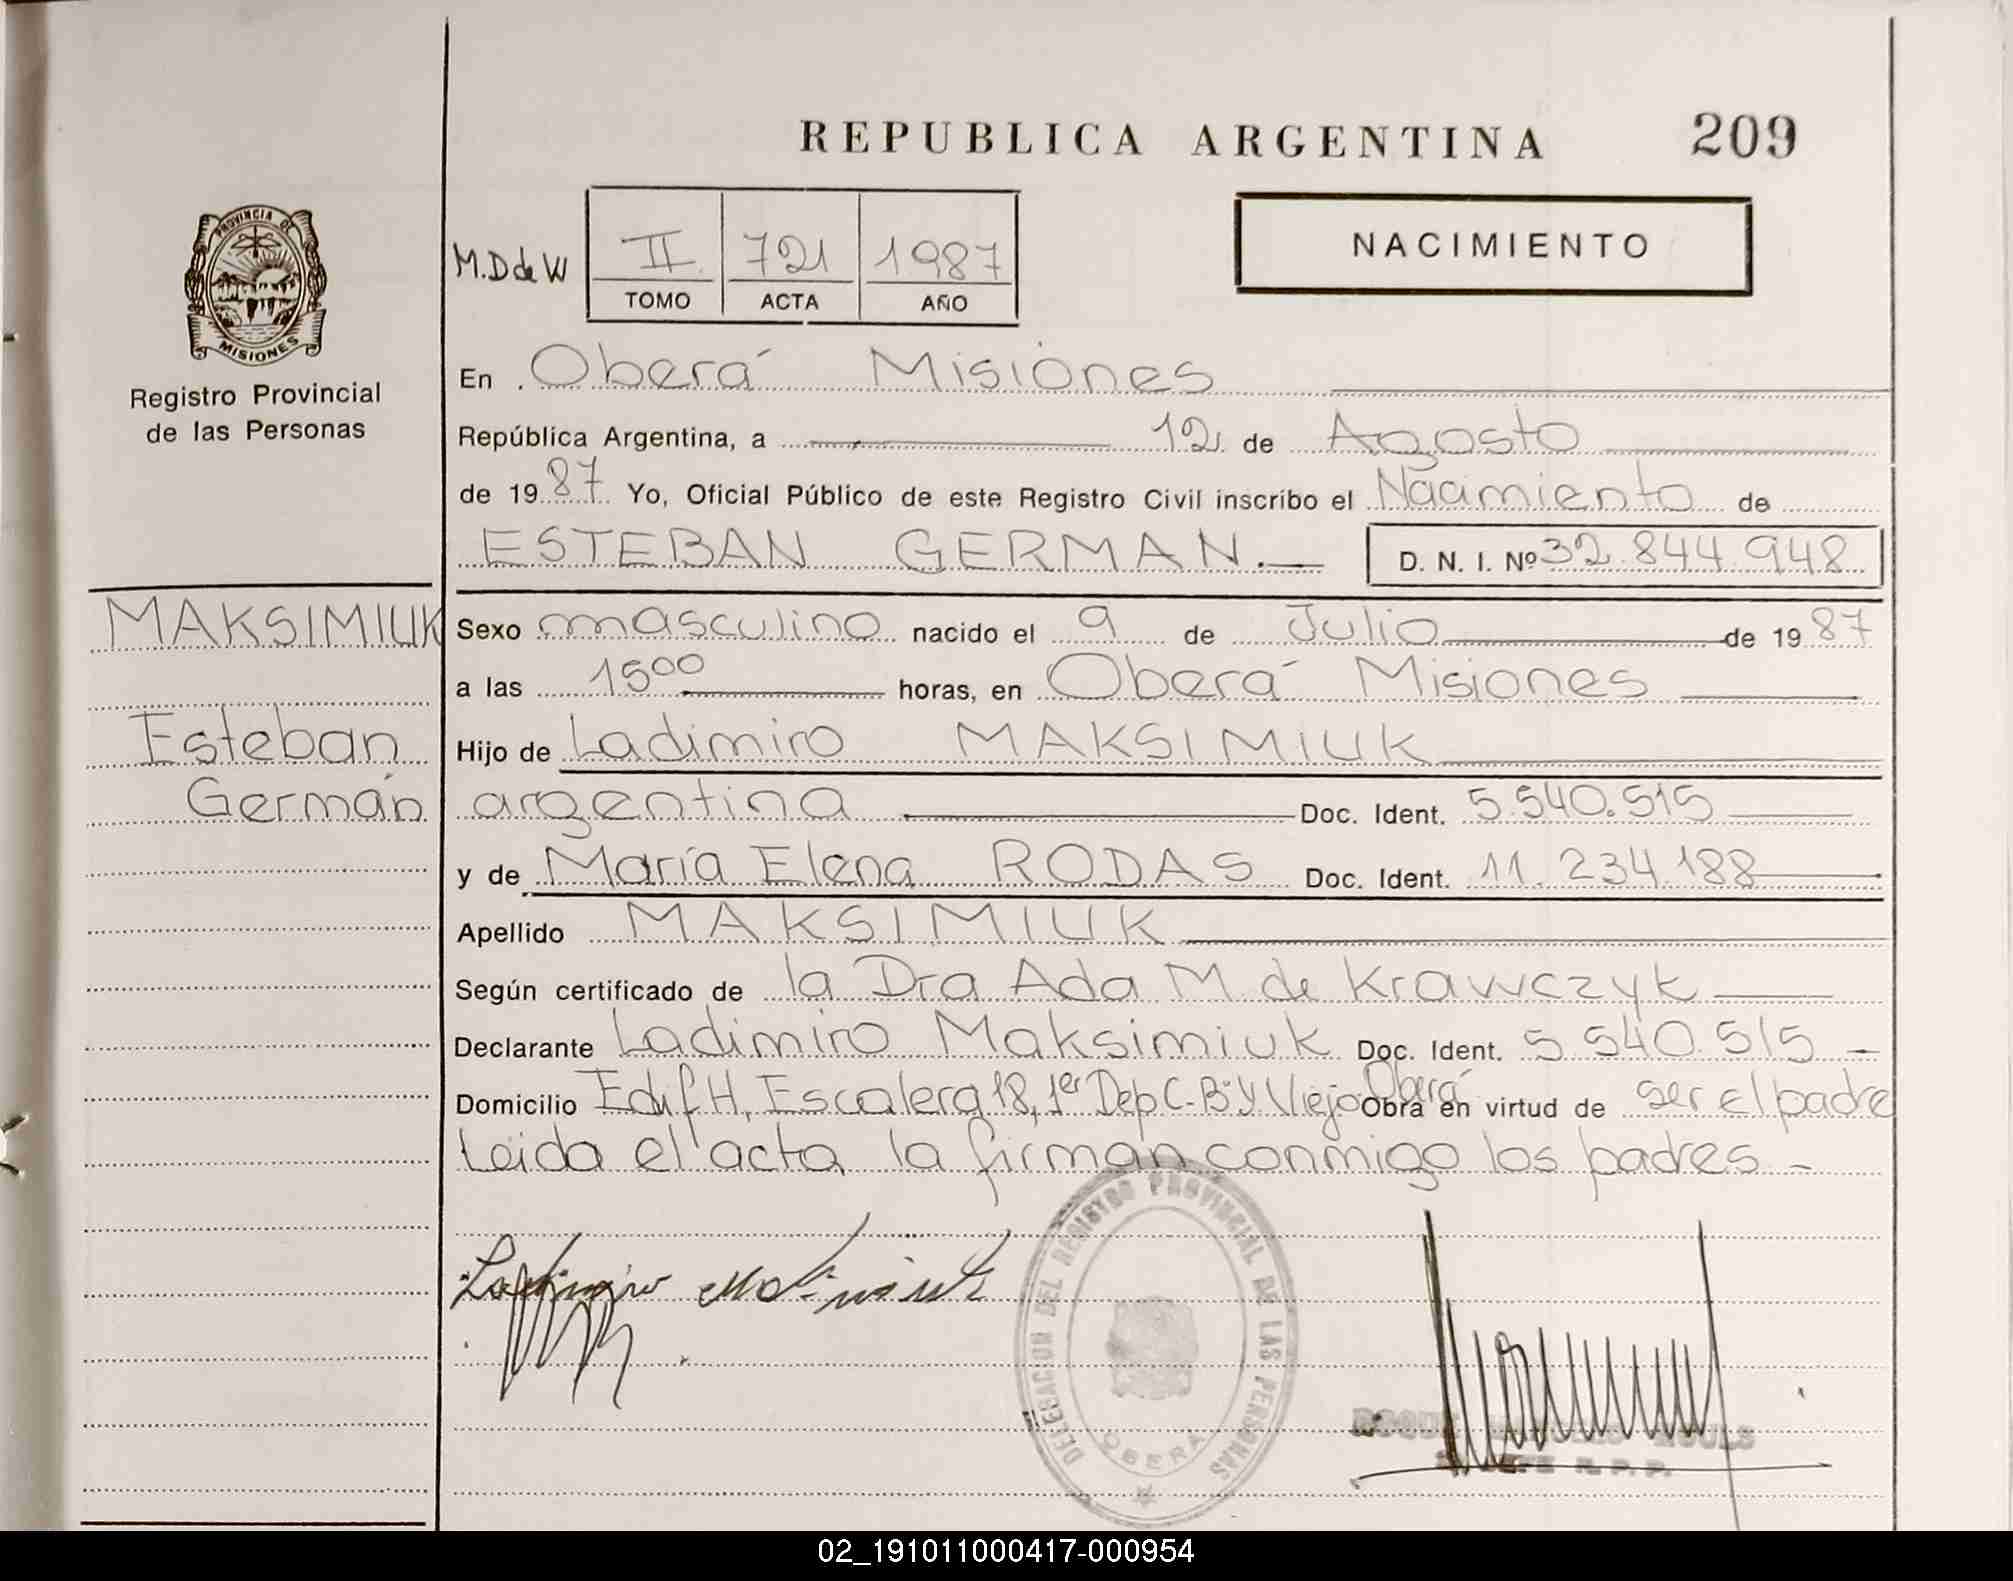 REPUBLICA ARGENTINA 209
PROVINCIA DE
MISIONES
Registro Provincial
de las Personas
M.D de W
II 721 1987
TOMO ACTA AÑO
NACIMIENTO
En Oberá Misiones
República Argentina, a 12 de Agosto
de 1987 Yo, Oficial Público de este Registro Civil inscribo el Nacimiento de
ESTEBAN GERMAN.— D. N. I. Nº 32.844.948
MAKSIMIUK
Esteban
Germán
Sexo masculino nacido el 9 de Julio de 1987
a las 15 00 horas, en Oberá Misiones
Hijo de Ladimiro MAKSIMIUK
argentina Doc. Ident. 5.540.515
y de María Elena RODAS Doc. Ident. 11.234.188
Apellido MAKSIMIUK
Según certificado de la Dra Ada M de Krawczyk
Declarante Ladimiro Maksimiuk Doc. Ident. 5 540.515 -
Domicilio Edif H, Escalera 18, 1er Dep C-Bº Y Viejo Oberá Obra en virtud de ser el padre
Leida el acta la firman conmigo los padres -
Ladimiro Maksimiuk
DELEGACION DEL REGISTRO PROVINCIAL DE LAS PERSONAS
OBERA
R. P. P.
02_191011000417-000954